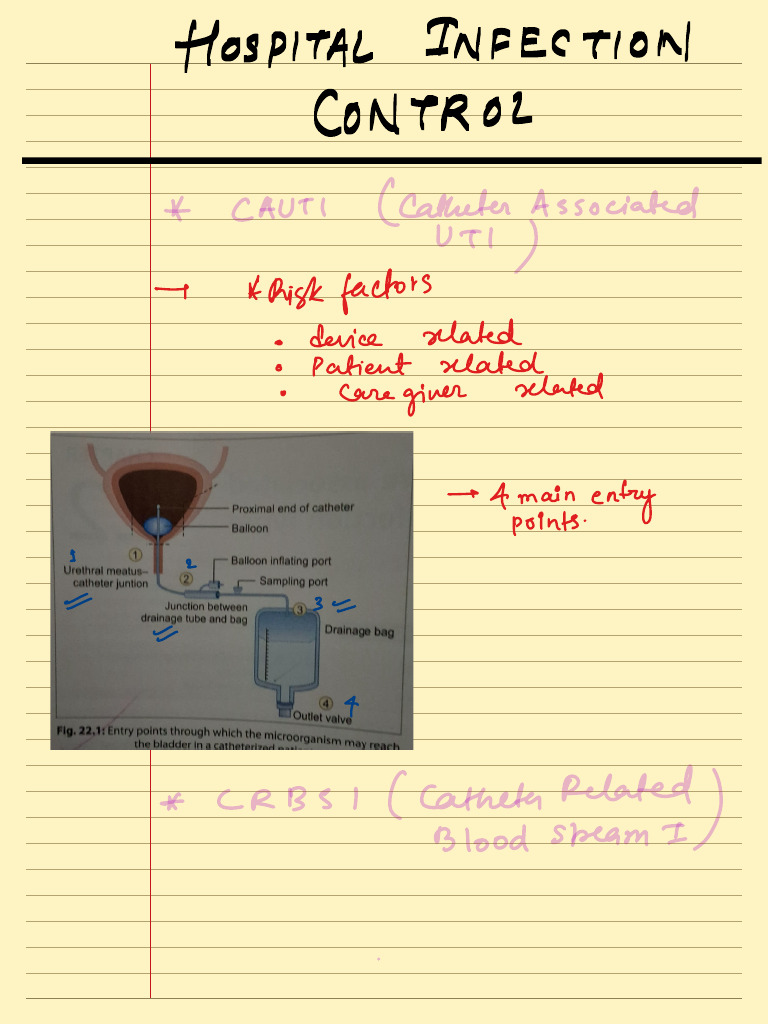 HOSPITAL INFECTION
CONTROL
* CAUTI (Catheter Associated
UTI)
→ * Risk factors
• device related
• Patient related
• Care giver related
→ 4 main entry
points.
Proximal end of catheter
Balloon
1
1
Urethral meatus–
catheter juntion
2
2
Balloon inflating port
Sampling port
Junction between
drainage tube and bag
3
3
Drainage bag
4
4
Outlet valve
Fig. 22.1: Entry points through which the microorganism may reach
the bladder in a catheterized
* CRBSI (Catheter Related
Blood stream I)